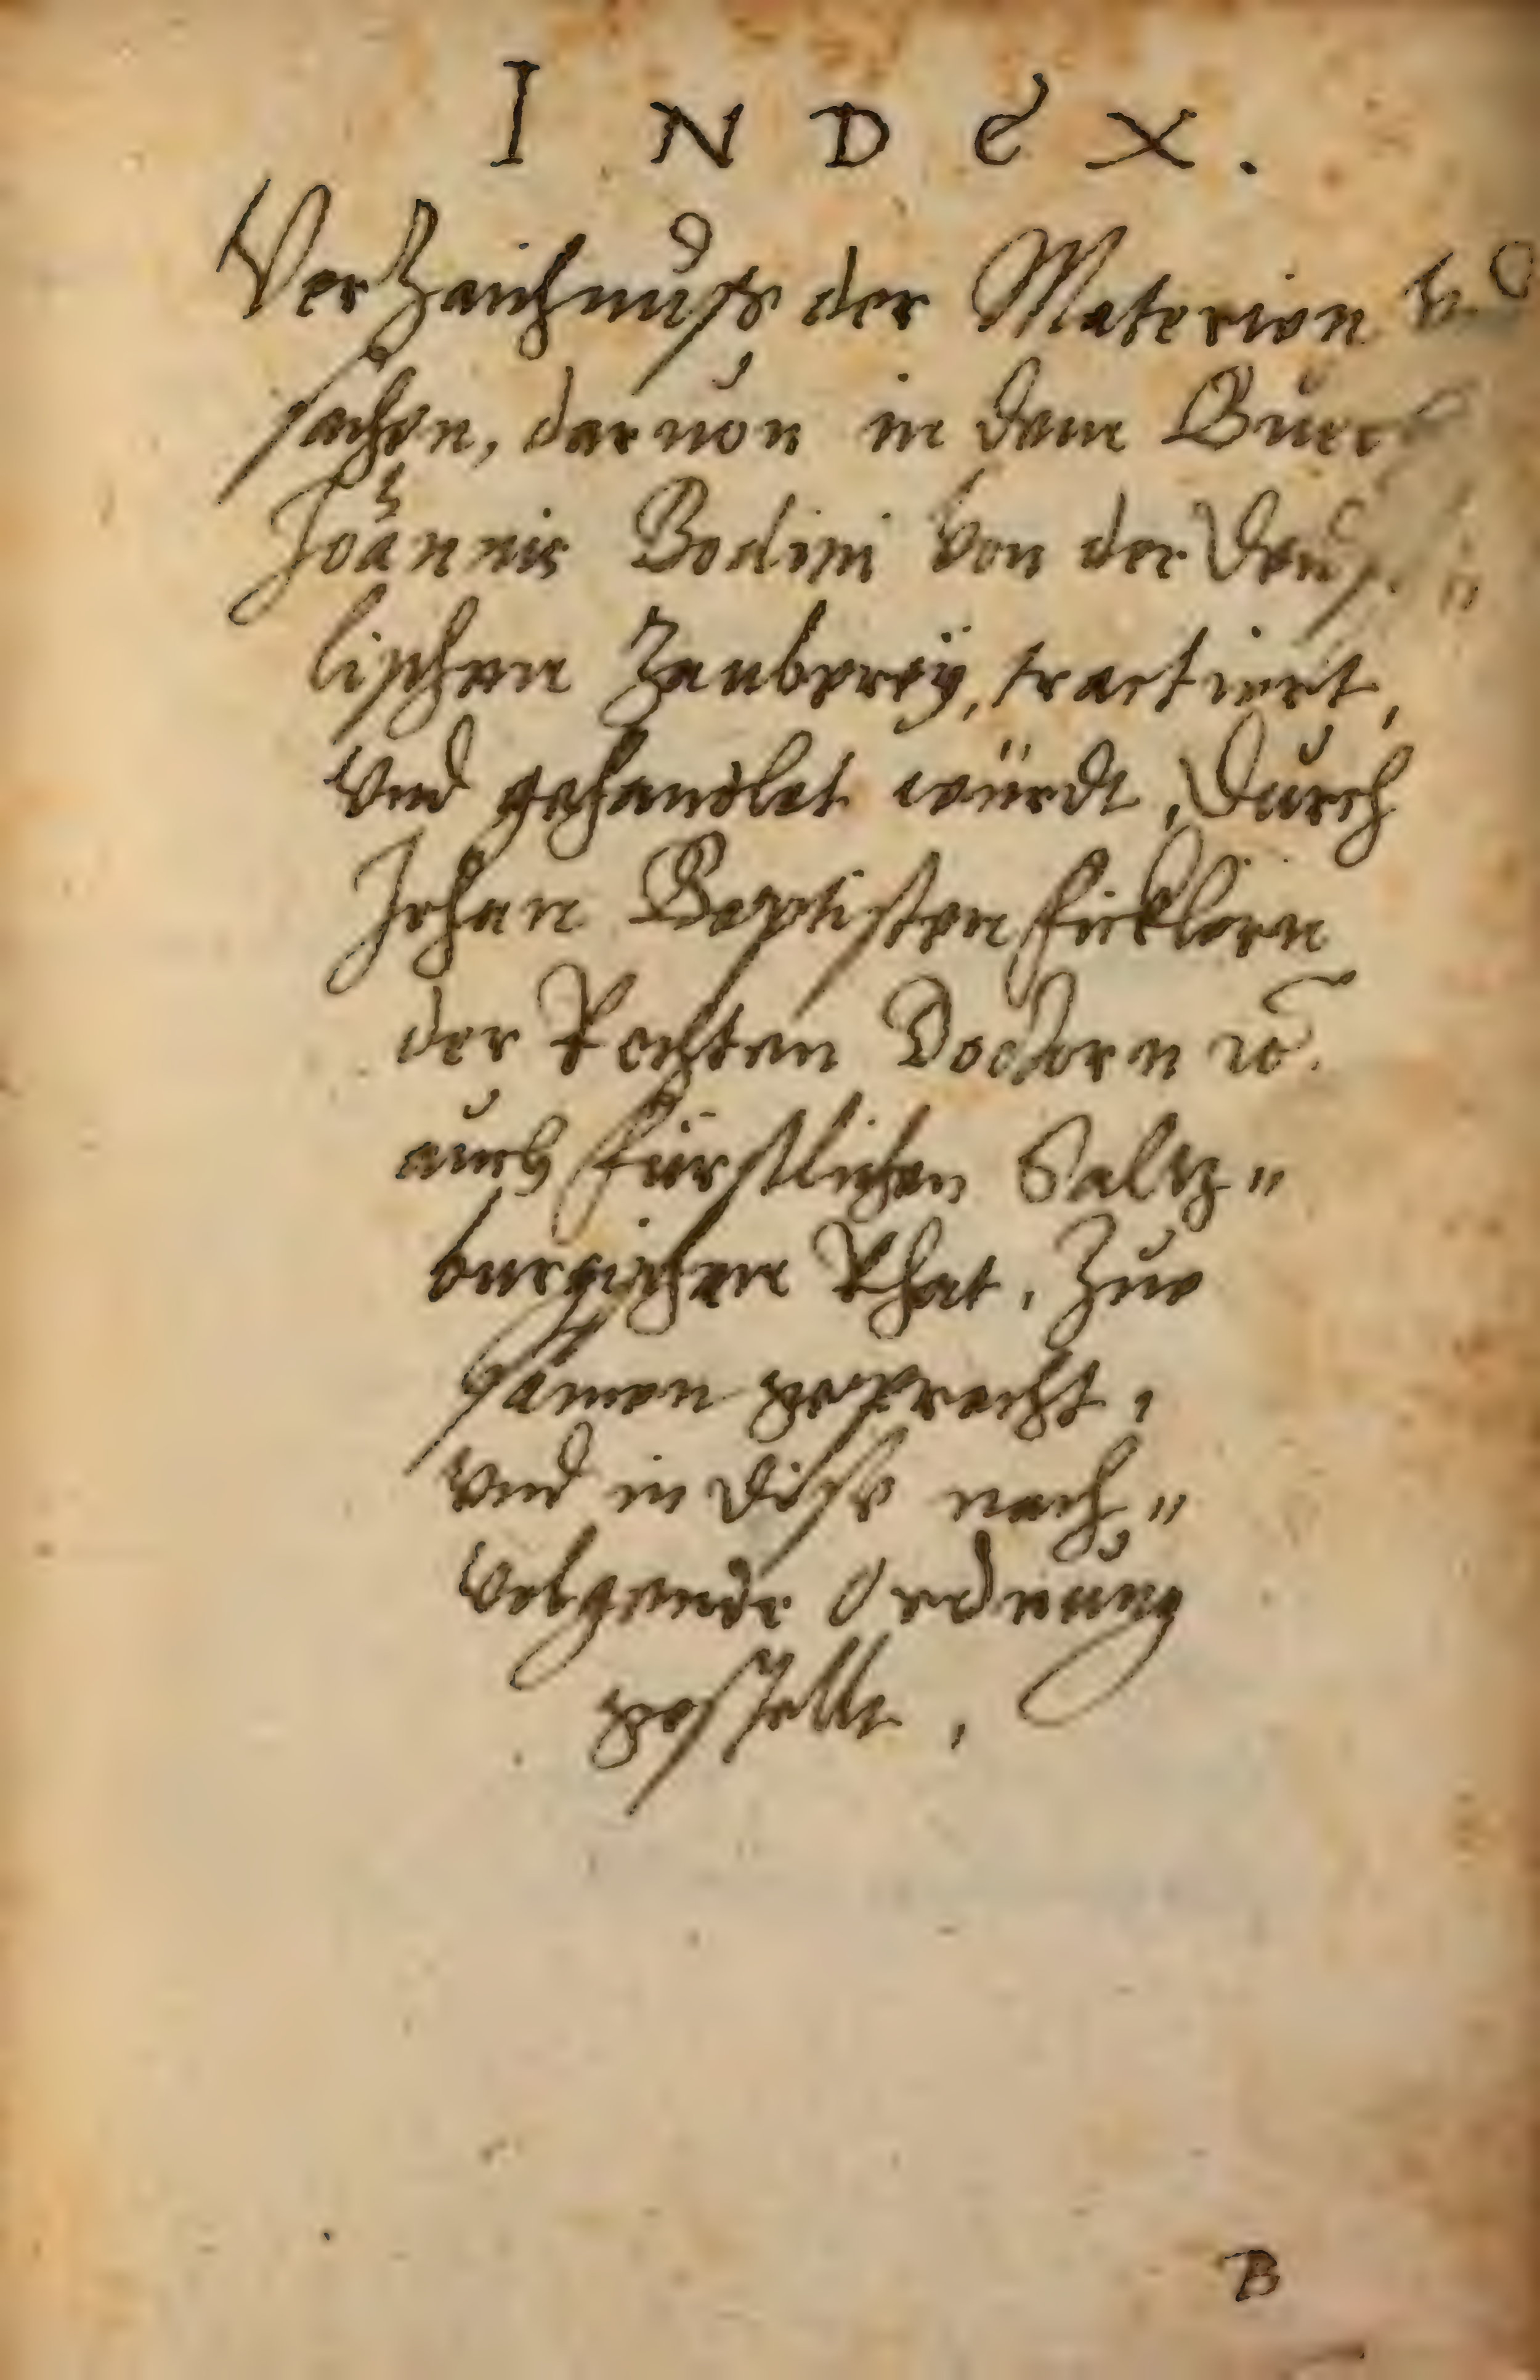 INDEX.
Verzaichnuß der Materien
sachen, daruon in dem Buech
Joannis Bodini von der Teuff„
lischen Zauberey, tractiert,
vnd gehandlet würdt, Durch
Johan Baptisten Ficklern
der Rechten Doctorn ꝛc.
auch Fürstlichen Saltz„
burgischen Rhat, Zue
samen gepracht,
vnd in dise nach„
volgende Ordnung
gestellt.
B